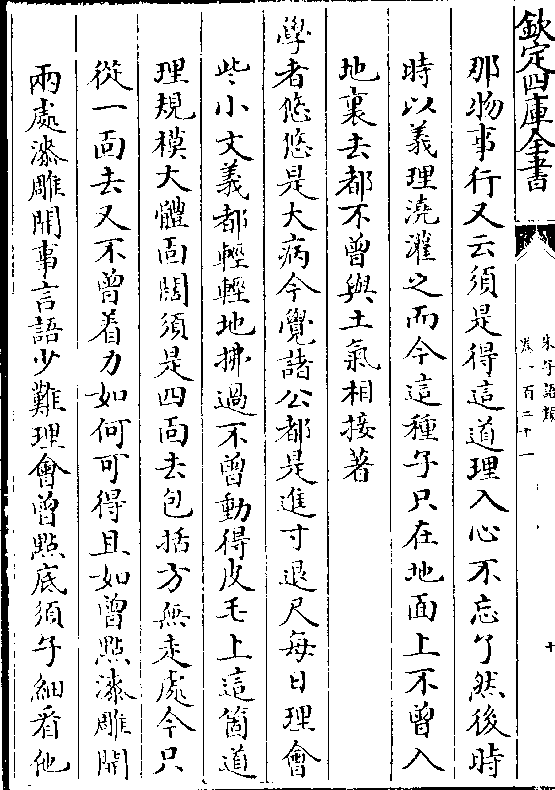 欽定四庫全書
朱子語類
卷一百二十一
十
那物事行又云須是得這道理入心不忘了然後時
時以義理澆灌之而今這種子只在地面上不曾入
地裏去都不曾與土氣相接著
學者悠悠是大病今覺諸公都是進寸退尺每日理會
些小文義都輕輕地拂過不曾動得皮毛上這箇道
理規模大體面闊須是四面去包括方無走處今只
從一面去又不曾着力如何可得且如曾點漆雕開
兩處漆雕開事言語少難理會曾點底須子細看他